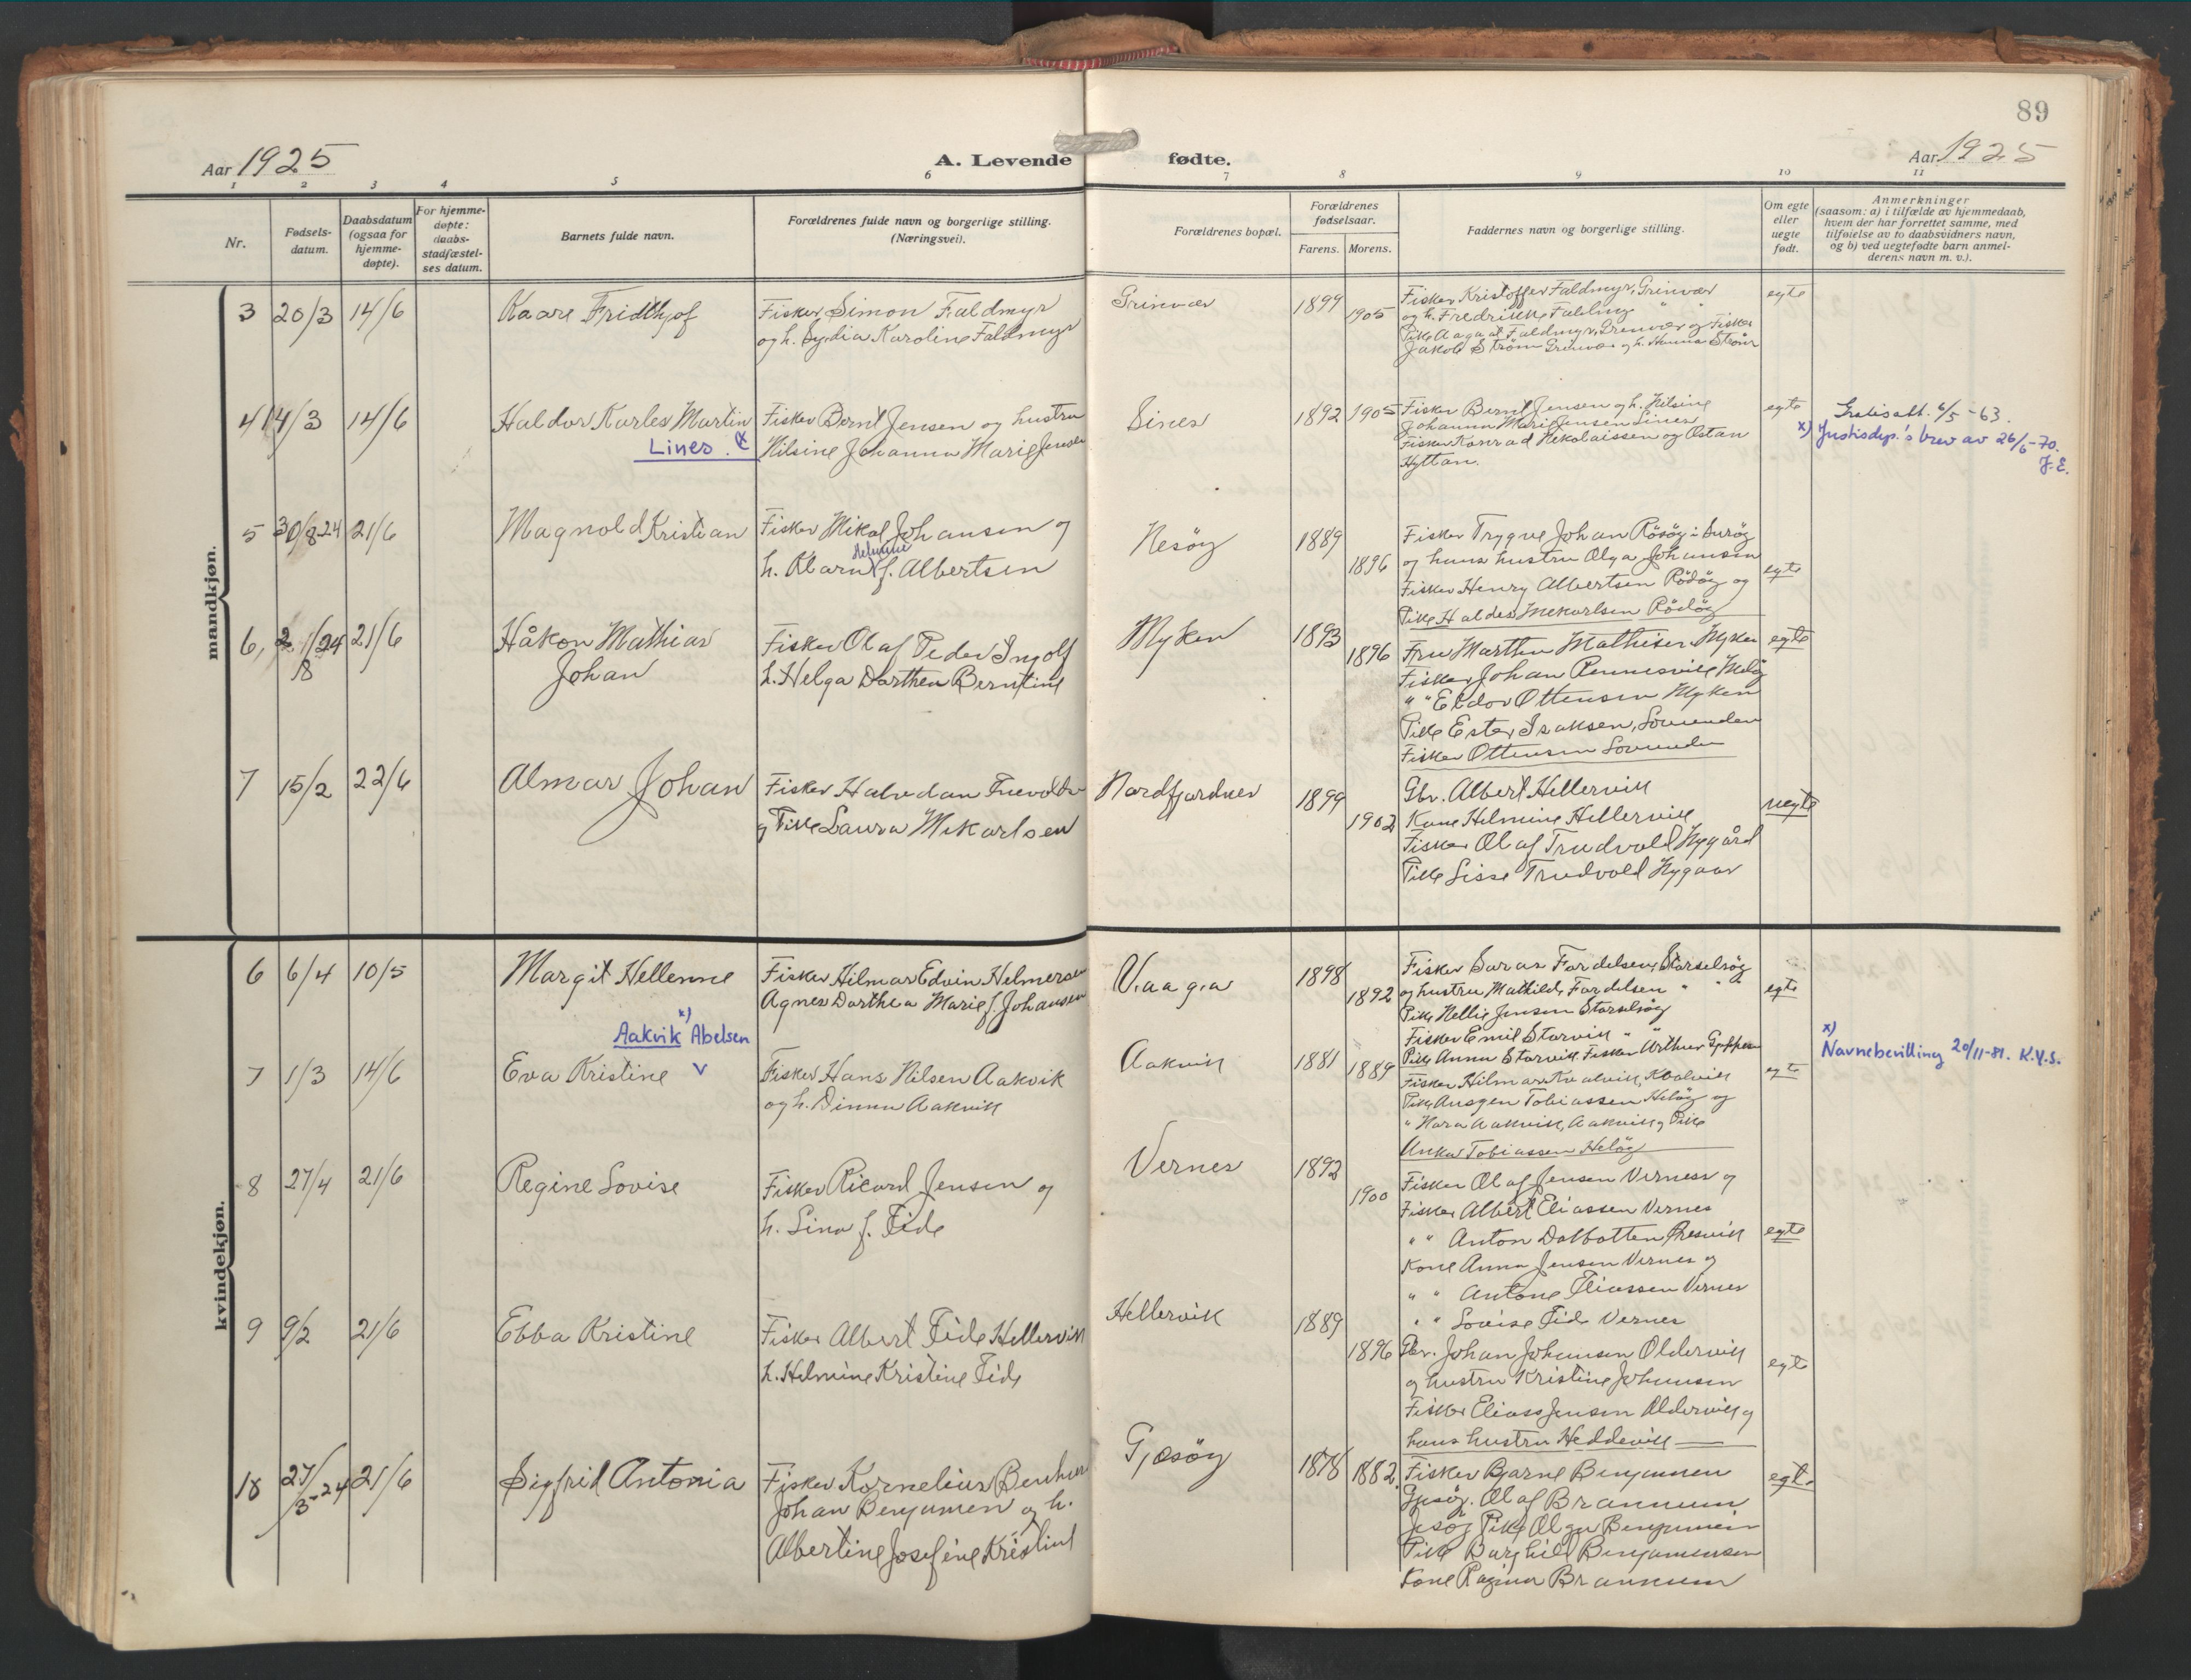 89
Aar 1925
A. Levende fødte.
Aar 1925
1 2 3 4 5 6 7 8 9 10 11
Nr.
Fødsels-
datum.
Daabsdatum
(ogsaa for
hjemme-
døpte).
For hjemme-
døpte:
daabs-
stadfæstel-
ses datum.
Barnets fulde navn.
Forældrenes fulde navn og borgerlige stilling.
(Næringsvei).
Forældrenes bopæl.
Forældrenes
fødselsaar.
Farens. Morens.
Faddernes navn og borgerlige stilling.
Om egte
eller
uegte
født.
Anmerkninger
(saasom: a) i tilfælde av hjemmedaab,
hvem der har forrettet samme, med
tilføielse av to daabsvidners navn,
og b) ved uegtefødte barn anmel-
derens navn m. v.).
mandkjøn.
3 20/3 14/6
Kaare Fridthjof
Fisker Simon Faldmyr
og h. Lydia Karoline Faldmyr
Grinvær
1899 1905
Fisker Kristoffer Faldmyr, Grinvær
og h. Fredrikke
Pike Aagaat Faldmyr, Grinvær og Fisker
Jakob Strøm Grinvær og h. Hanna Strøm
egte
4 14/3 14/6
Haldor Karles Martin
Lines. x
Fisker Bernt Jensen og hustru
Nilsine Johanna Marie Jensen
Lines
1892 1905
Fisker Bernt Jensen og h. Nilsine
Johanna Marie Jensen Lines
Fisker Konrad Nikolaissen og Østan
Hyttan.
egte
6/5-63.
x) Justisdep.'s brev av 26/6-70.
J.E.
5 30/8-24 21/6
Magnold Kristian
Fisker Mikal Johansen og
h. Klara f. Albertsen
Nesøy
1889 1896
Fisker Trygve Johan Røsøy i Lurøy
og hans hustru Olga Johansen
Fisker Henry Albertsen Rødøy og
Pike Mikarlsen Rødøy
egte
6, 2 1/24 18 21/6
Håkon Mathias
Johan
Fisker Olaf Peder Ingolf
h. Helga Dorthea Berntine
Myken
1893 1896
Fru Martha Mathisen Myken
Fisker Johan Rennesvik Meløy
" " Eldor Ottensen Myken
Pike Ester Isaksen, Lovunden
Fisker Ottensen Lovunden
egte
7 15/2 22/6
Almar Johan
Fisker Halvdan
og Pike Laura Mikarlsen
Nordfjordnes
1899 1902
Gbr. Albert Hellervik
Kone Helmine Hellervik
Fisker Olaf Trudvold Nygård
Pike Lisse Trudvold Nygaar
uegte
kvindekjøn.
6 6/4 10/5
Margit Hellenne
Fisker Hilmar Edvin Helmersen
Agnes Dorthea Marie f. Johansen
Vaaga
1898 1892
Fisker Fordelsen, Storselsøy
og hustru Mathilde Fordelsen " "
Pike Nellie Jensen Storselsøy
Fisker Emil Storvik " "
Pike Anna Storvik Fisker Arthur
egte
x)
Aakvik Abelsen
7 1/3 14/6
Eva Kristine v
Fisker Hans Nilsen Aakvik
og h. Dinna Aakvik
Aakvik
1881 1889
Fisker Hilmar Kvalvik, Kvalvik
Pike Aasgen Tobiassen Heløy og
" Nora Aakvik, Aakvik og Pike
Anka Tobiassen Heløy
egte
x)
Navnebevilling 20/11-81. K.Y.S.
8 27/4 21/6
Regine Lovise
Fisker Ricard Jensen og
h. Lina f. Eide
Vernes
1892 1900
Fisker Olaf Jensen Verness og
Fisker Albert Eliassen Vernes
" " Anton Dalbotten Presvik
Kone Anna Jensen Vernes og
" " Antone Eliassen Vernes
" " Lovise Eide Vernes
egte
9 9/2 21/6
Ebba Kristine
Fisker Albert Eide Hellervik
h. Helmine Kristine Eide
Hellervik
1889 1896
Gbr. Johan Johansen Oldervik
og hustru Kristine Johansen
Fisker Elias Jensen Oldervik og
hans hustru Heddevik
egte
10 27/3-24 21/6
Sigfrid Antonia
Fisker Kornelius Benhur
Johan Benjamen og h.
Albertine Josefine Kristine
Gjesøy
1878 1882
Fisker Bjarne Benjamen
Gjesøy. Olaf Brannum
Gjesøy Pike Olga Benjamin
Pike Borghild Benjamensen
Kone Ragna Brannum
egte